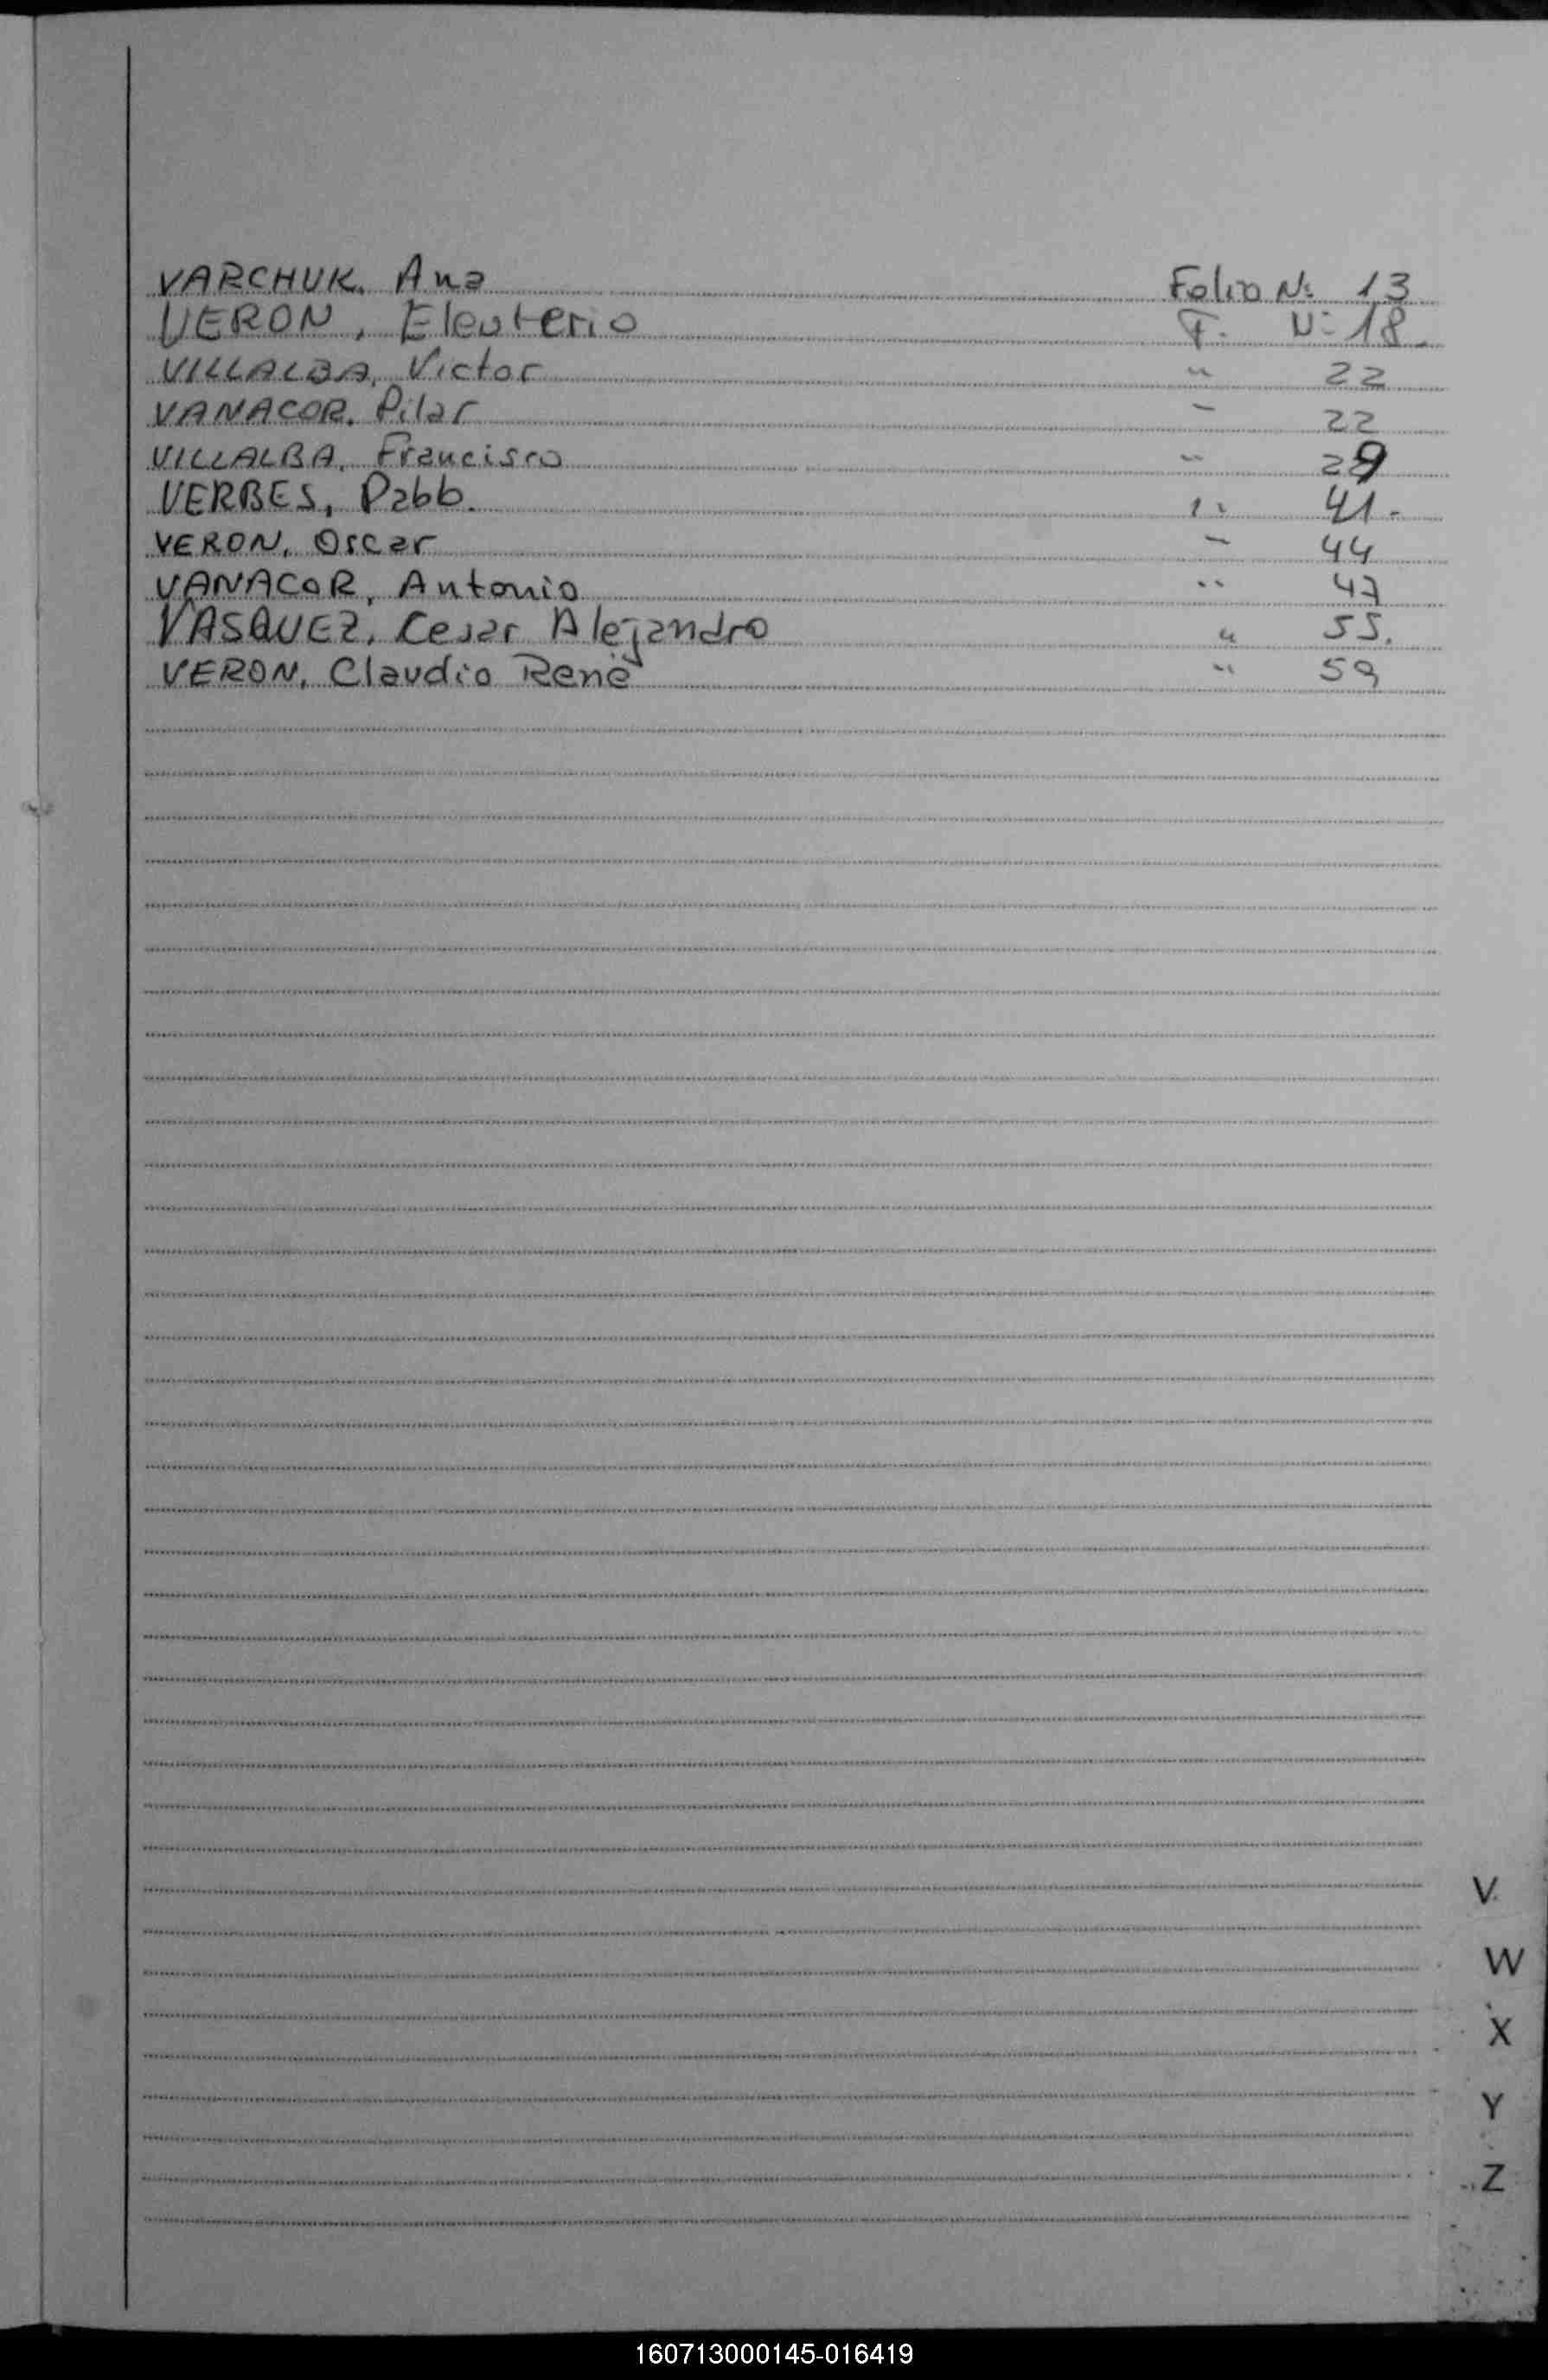 VARCHUK, Ana Folio Nº 13
VERON, Eleuterio F. Nº 18.
VILLALBA, Victor " 22
VANACOR, Pilar " 22
VILLALBA, Francisco " 29
VERBES, Pablo. " 41.
VERON, Oscar " 44
VANACOR, Antonio " 47
VASQUEZ, Cesar Alejandro " 55.
VERON, Claudio René " 59
V
W
X
Y
Z
160713000145-016419